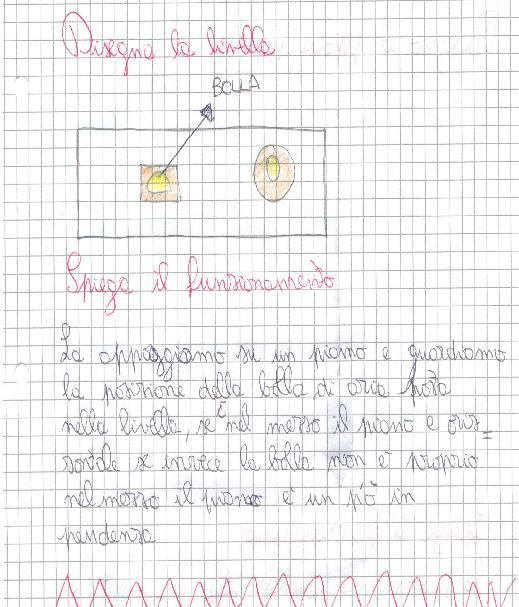 Disegna la livella
BOLLA
Spiega il funzionamento
La appoggiamo su un piano e guardiamo
la posizione della bolla di aria posta
nella livella, se è nel mezzo il piano e oriz=
zontale se invece la bolla non è proprio
nel mezzo il piano è un pò in
pendenza